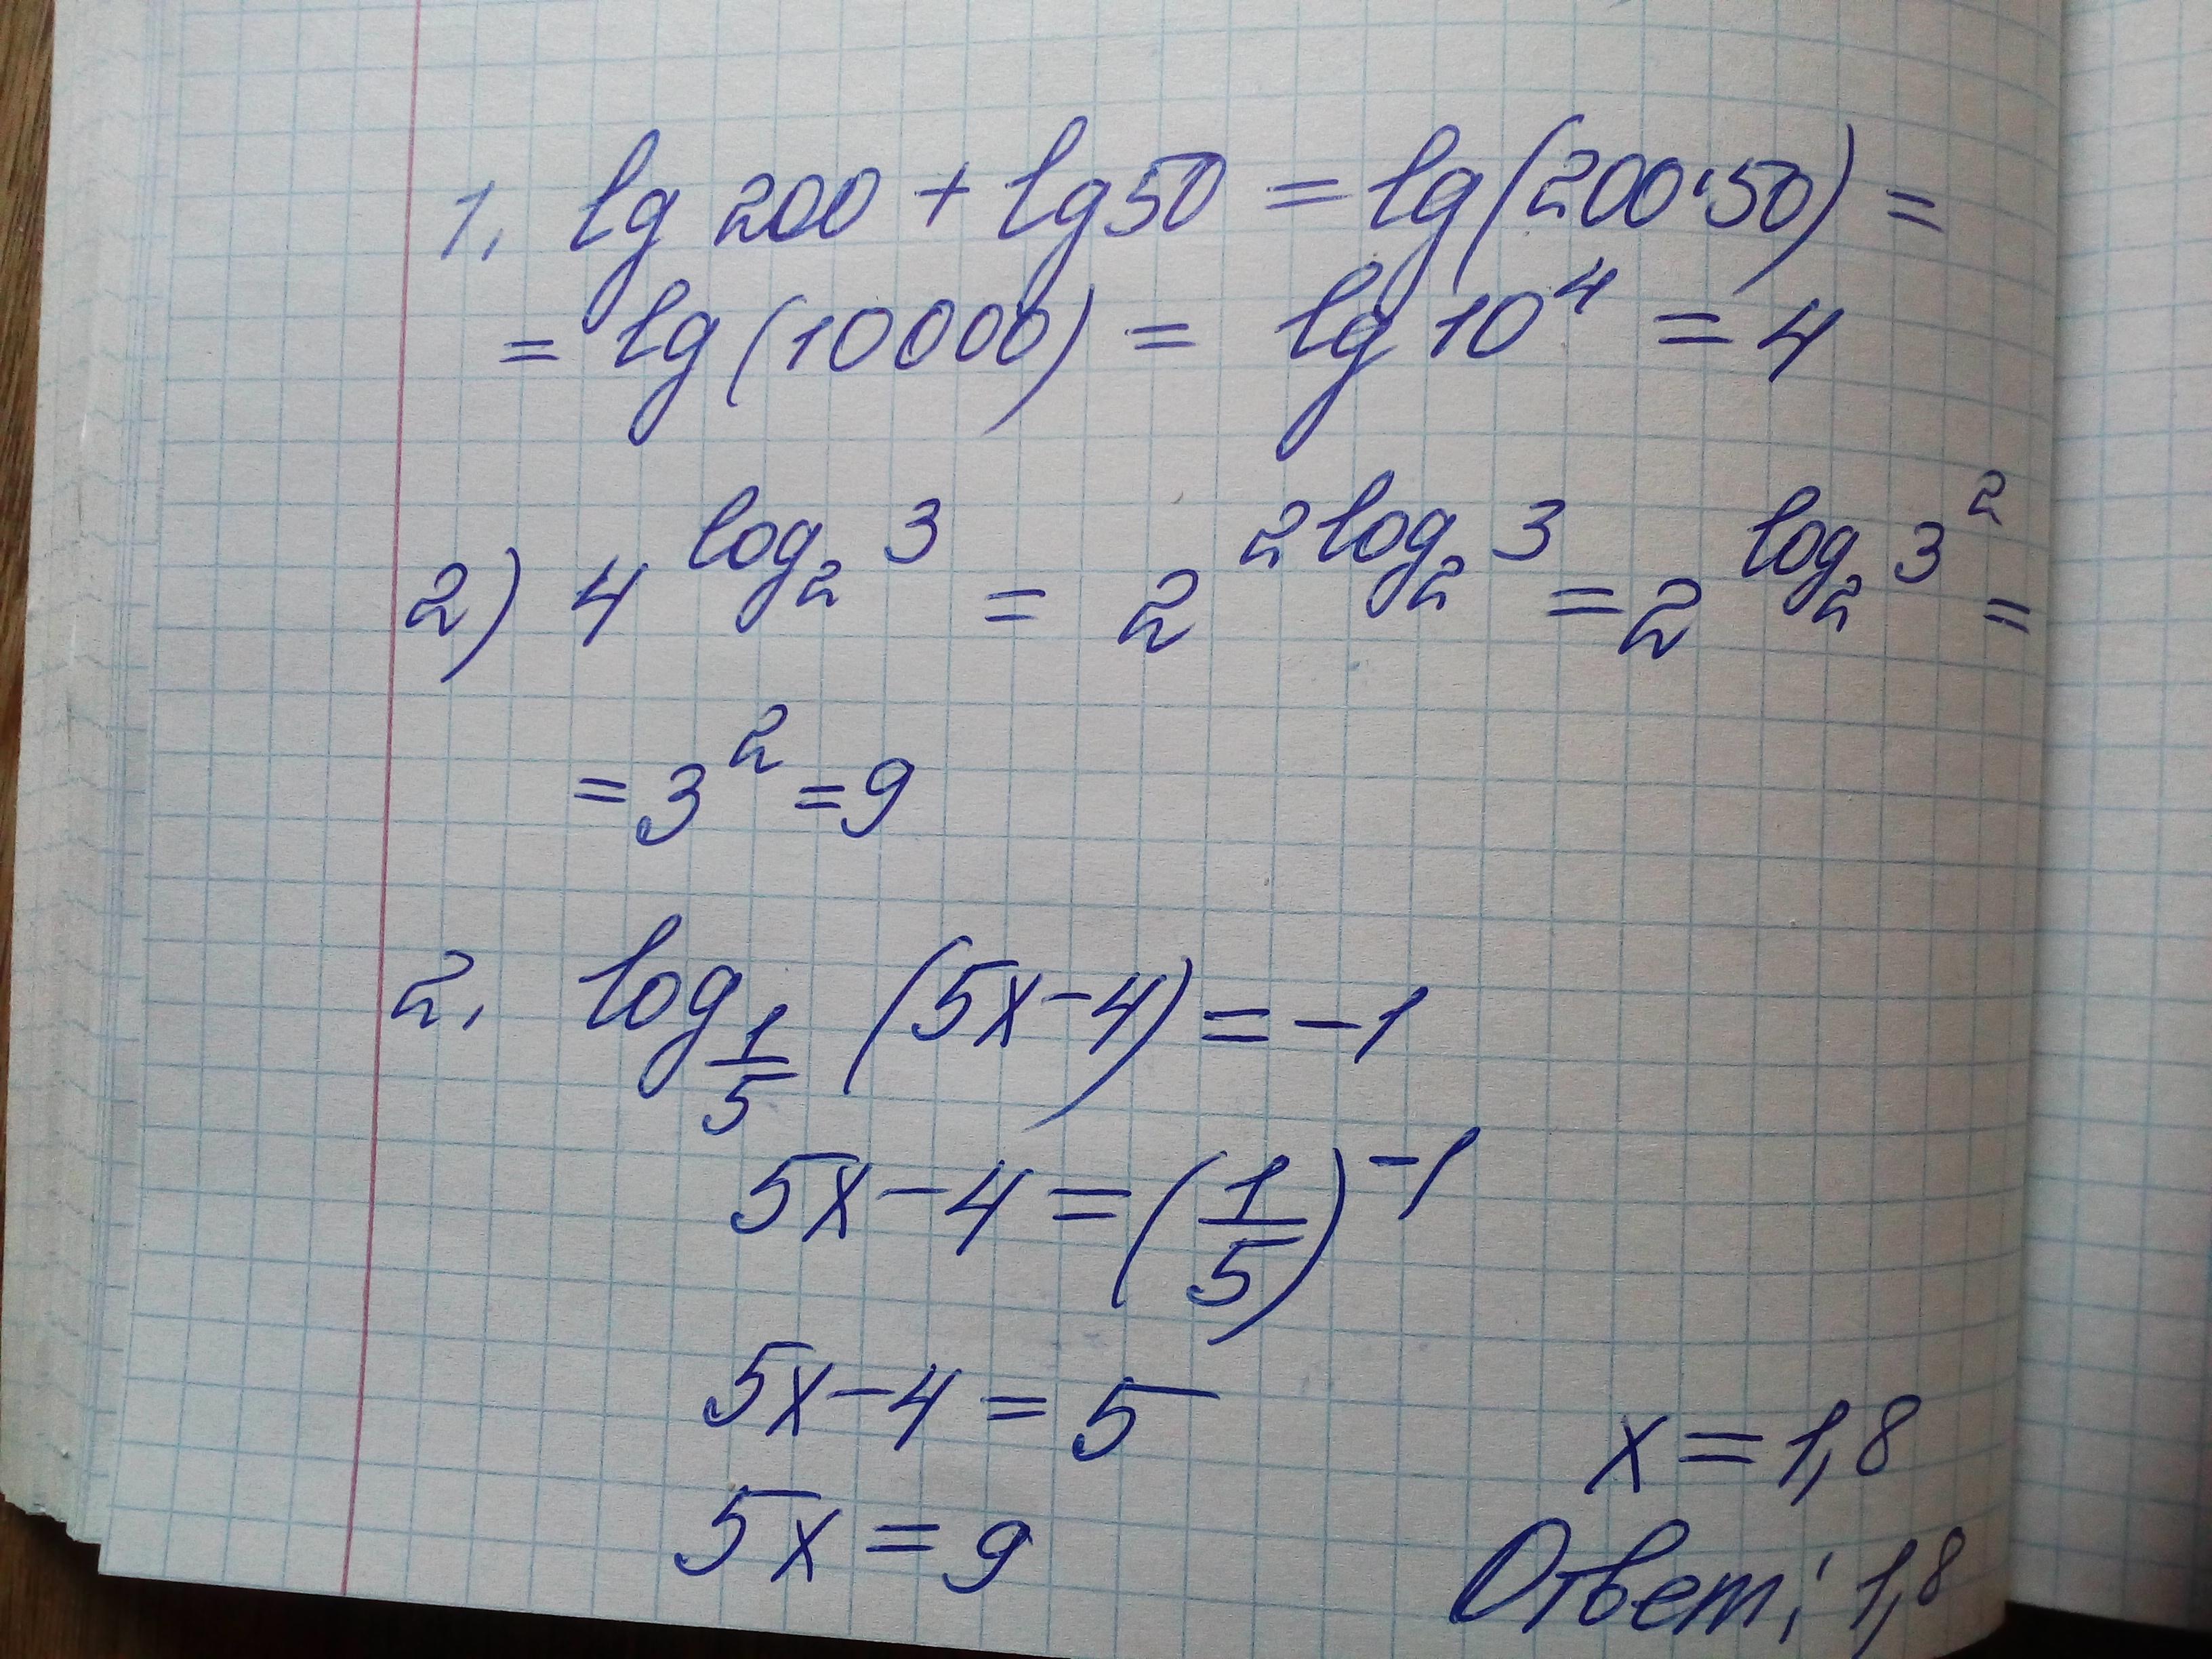 1. lg 200 + lg 50 = lg(200·50) =
= lg(10000) = lg 10⁴ = 4
2) 4^(log₂ 3) = 2^(2 log₂ 3) = 2^(log₂ 3²) =
= 3² = 9
2. log_(1/5) (5x-4) = -1
5x-4 = (1/5)⁻¹
5x-4 = 5
5x = 9
x = 1,8
Ответ: 1,8